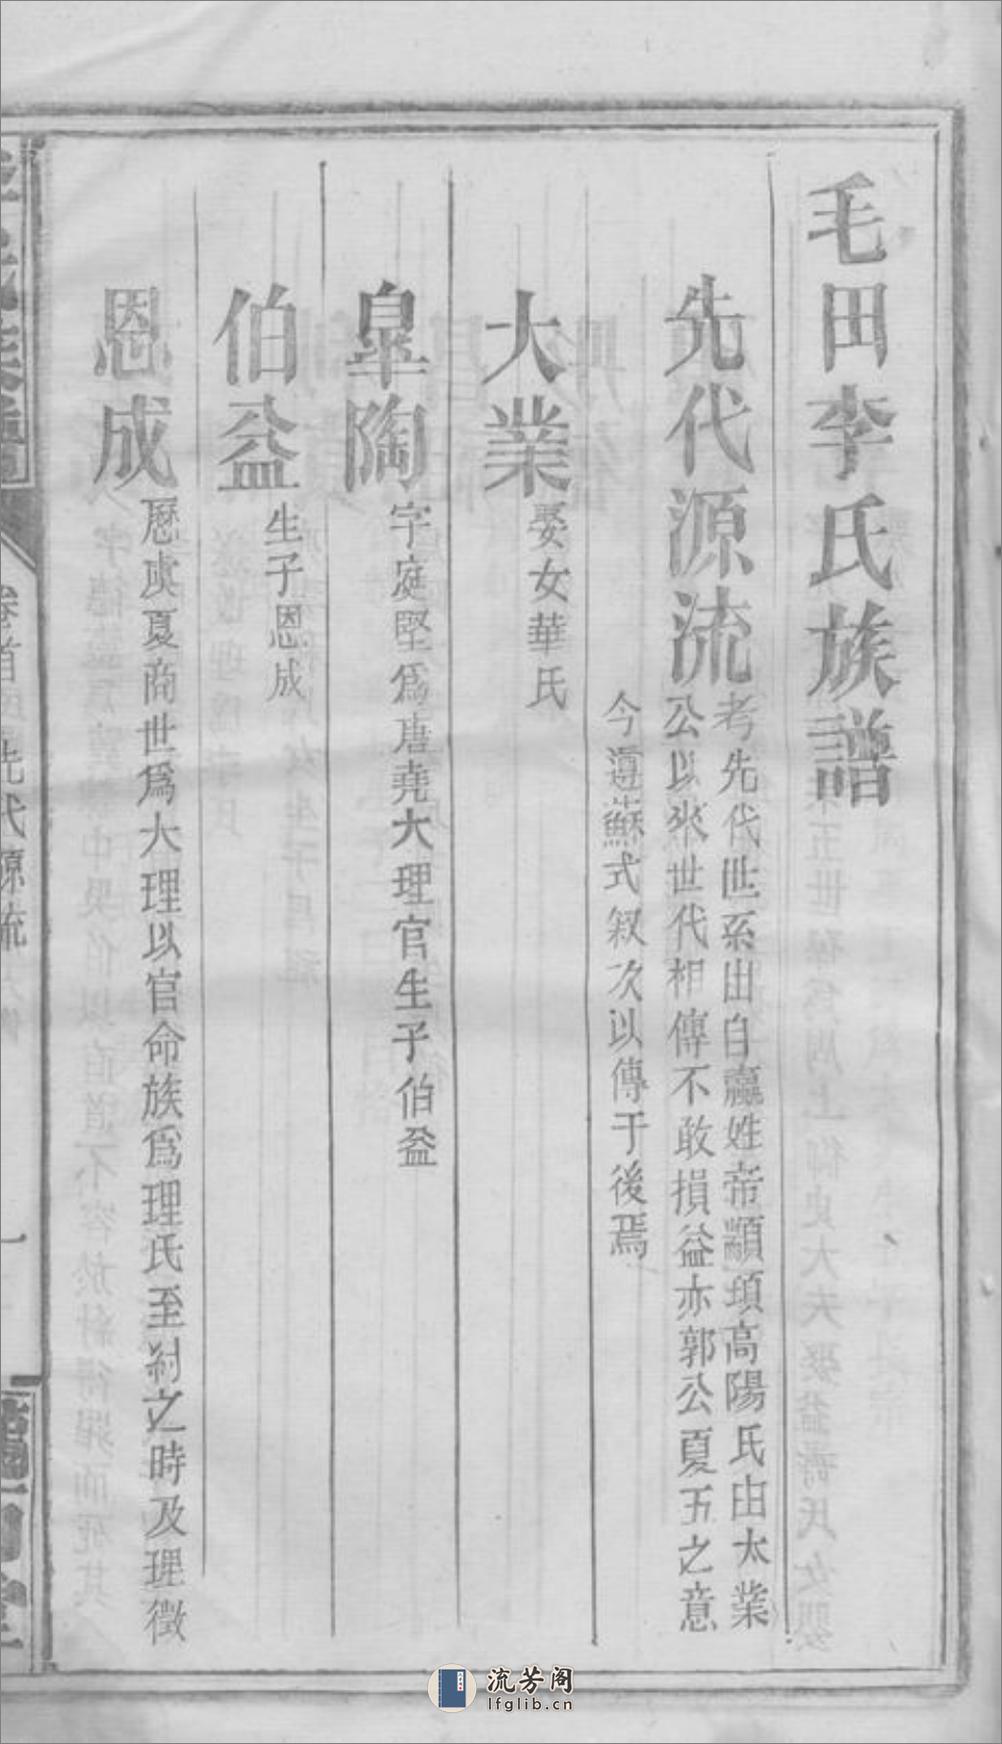 毛田李氏族譜
先代源流
考先代世系出自嬴姓帝顓頊高陽氏由太業
公以來世代相傳不敢損益亦郭公夏五之意
今遵蘇式叙次以傳于後焉
大業娶女華氏
皐陶字庭堅爲唐堯大理官生子伯益
伯益生子恩成
恩成歷虞夏商世爲大理以官命族爲理氏至紂之時及理徵
卷首
先代源流
一
流芳阁
lfglib.cn